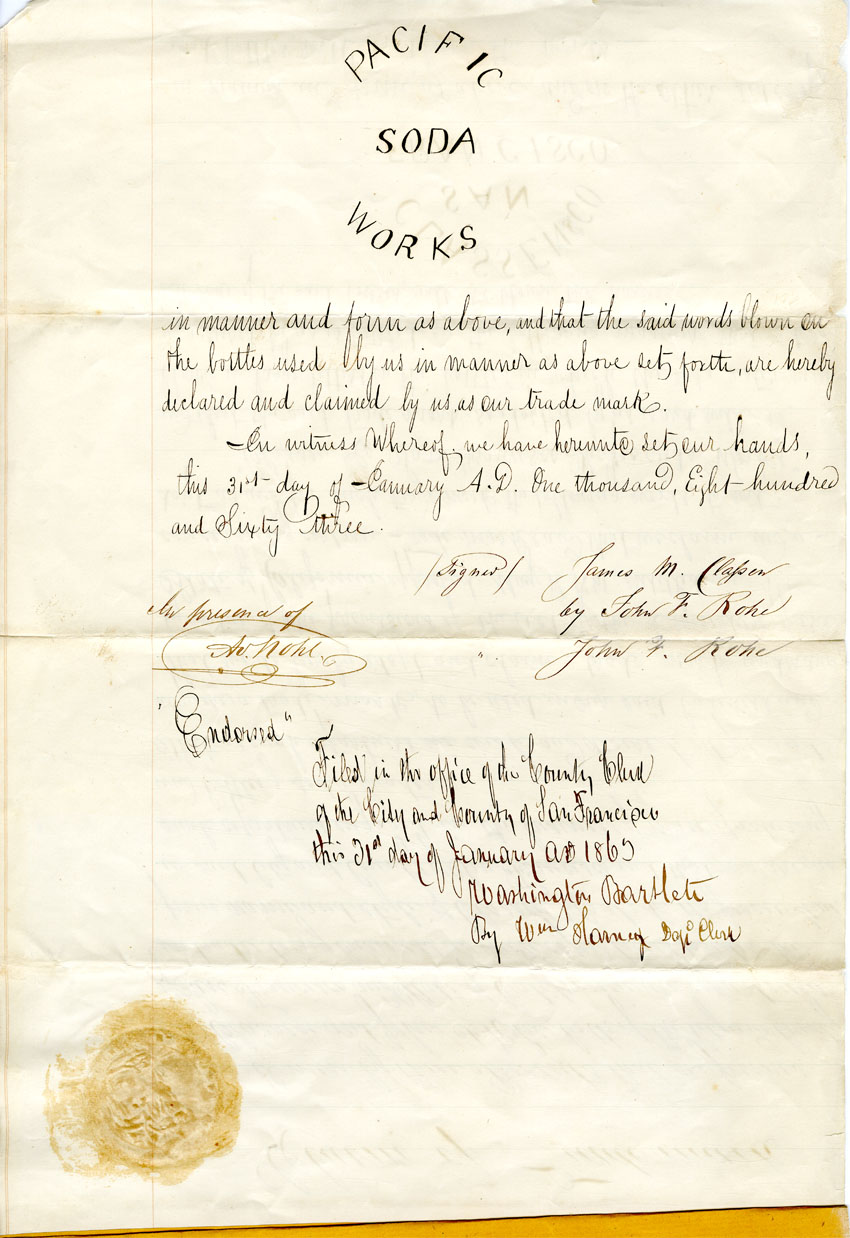 PACIFIC
SODA
WORKS
in manner and form as above, and that the said words blown on
the bottles used by us in manner as above set forth, are hereby
declared and claimed by us, as our trade mark.
In witness Whereof, we have hereunto set our hands,
this 31st day of January A.D. One thousand, Eight hundred
and Sixty three.
(Signed) James M. Classen
In presence of by John F. Rohe
" John F. Rohe
"Endorsed"
Filed in the office of the County Clerk
of the City and County of San Francisco
this 31st day of January AD 1863
Washington Bartlett
By Wm Harney Depy Clerk